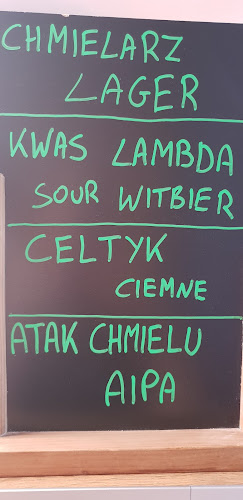 CHMIELARZ
LAGER
KWAS LAMBDA
SOUR WITBIER
CELTYK
CIEMNE
ATAK CHMIELU
AIPA